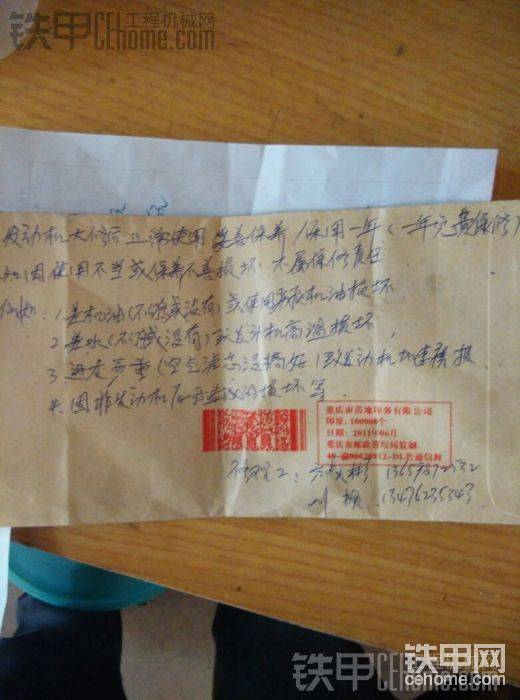 铁甲 工程机械网
CEhome.com
发动机大修后正常使用妥善保养/保用一年(一年免费保修)
如因使用不当或保养不善损坏不属保修责任
例如:1差机油(不够或没有)或使用劣质机油损坏
2.差水(不够或没有)或发动机高温损坏,
3.进灰严重(空气滤芯没搞好)至发动机加速磨损
4.因非发动机损坏等
重庆市茁地印务有限公司
印量:100000个
日期:2011年06月
重庆市邮政管理局监制
40-渝00620912-DL普通信封
修理工:
刘 13476235343
铁甲网
CEHOME.COM
铁甲 工程机械网
CEhome.com